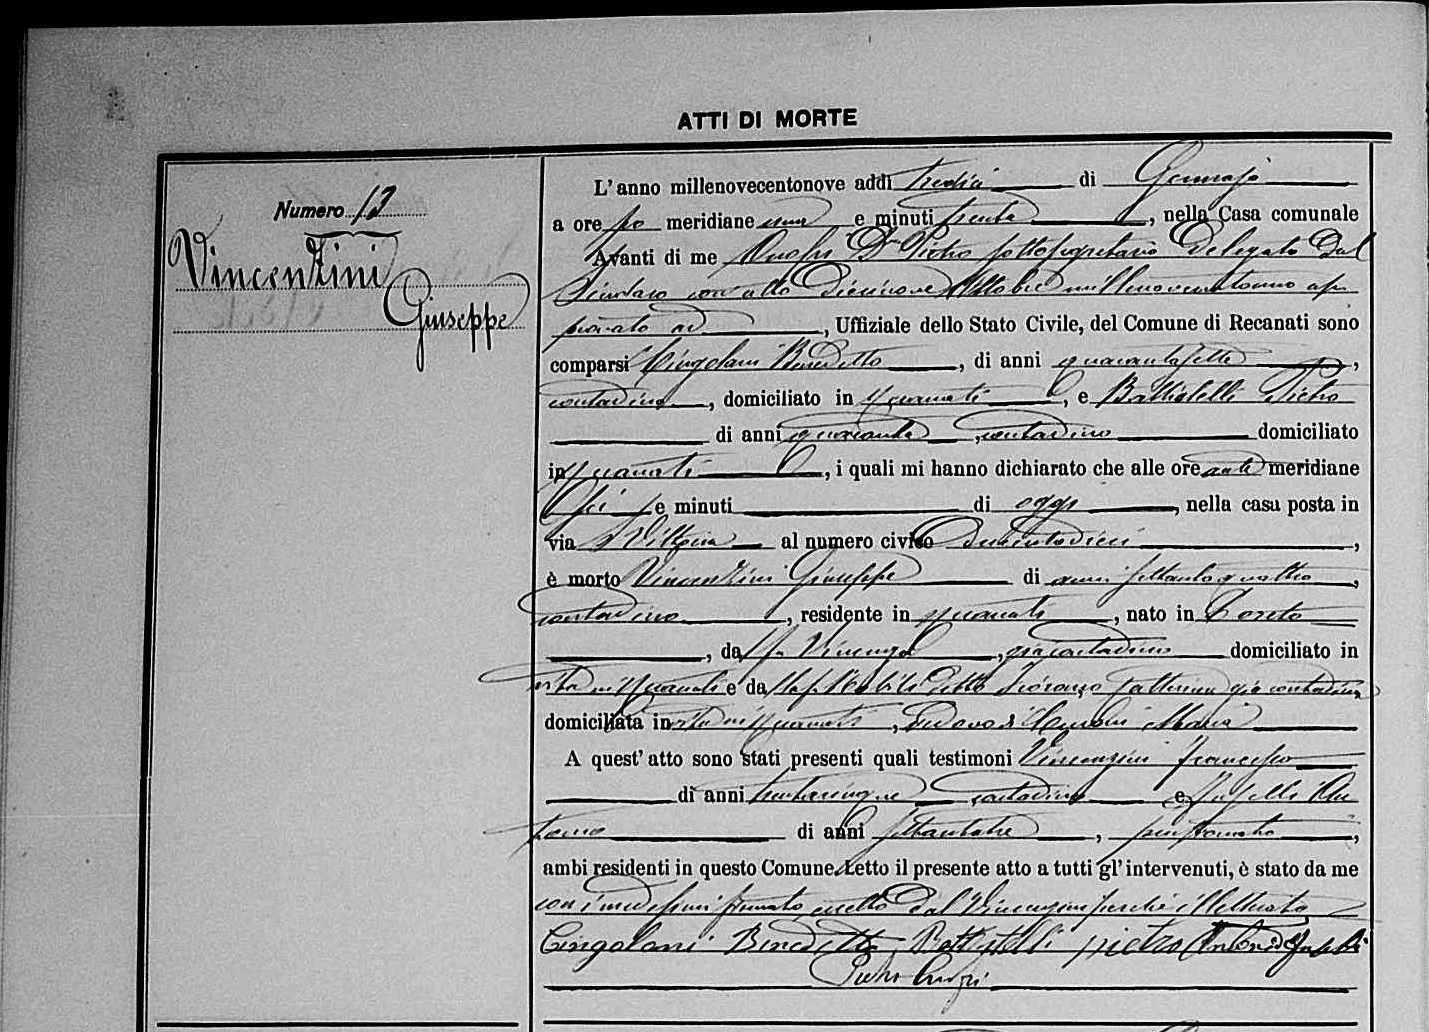 ATTI DI MORTE
Numero 13
Vincenzini
Giuseppe
L'anno millenovecentonove addì tredici di Gennajo
a ore po meridiane una e minuti trenta, nella Casa comunale
Avanti di me Dr Pietro sottosegretario Delegato Dal
Sindaco con atto Diecinove Ottobre ap
provato, Uffiziale dello Stato Civile, del Comune di Recanati sono
comparsi Cingolani Benedetto, di anni quarantasette,
contadino, domiciliato in Recanati, e Battistelli Pietro
di anni quaranta, contadino domiciliato
in Recanati, i quali mi hanno dichiarato che alle ore anti meridiane
sei e minuti di oggi, nella casa posta in
via al numero civico,
è morto Vincenzini Giuseppe di anni settantaquattro,
contadino, residente in Recanati, nato in Loreto
, da fu Vincenzo, già contadino domiciliato in
vita in Recanati e da già contadina
domiciliata in vita in Recanati, vedovo di Maria
A quest' atto sono stati presenti quali testimoni Vincenzini Francesco
di anni trentacinque contadino e An
tonio di anni settantatre, pensionato,
ambi residenti in questo Comune. Letto il presente atto a tutti gl' intervenuti, è stato da me
con i medesimi firmato eccetto Dal Vincenzini perchè illetterato
Cingolani Benedetto Battistelli pietro Antonio
Pietro